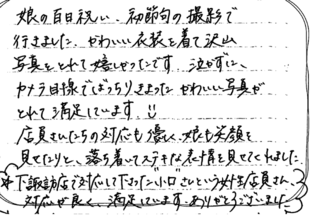 娘の百日祝い、初節句の撮影で
行きました。かわいい衣装を着て沢山
写真をとれて嬉しかったです。泣かずに、
カメラ目線でばっちりきまった かわいい写真が
とれて満足しています。
店員さんたちの対応も優しく、娘も笑顔を
見せたりと、落ち着いてステキな表情を見せてくれました。
*下諏訪店で対応して下さった"小口"さんという女性店員さん、
対応が良く、満足しています。ありがとうございました。